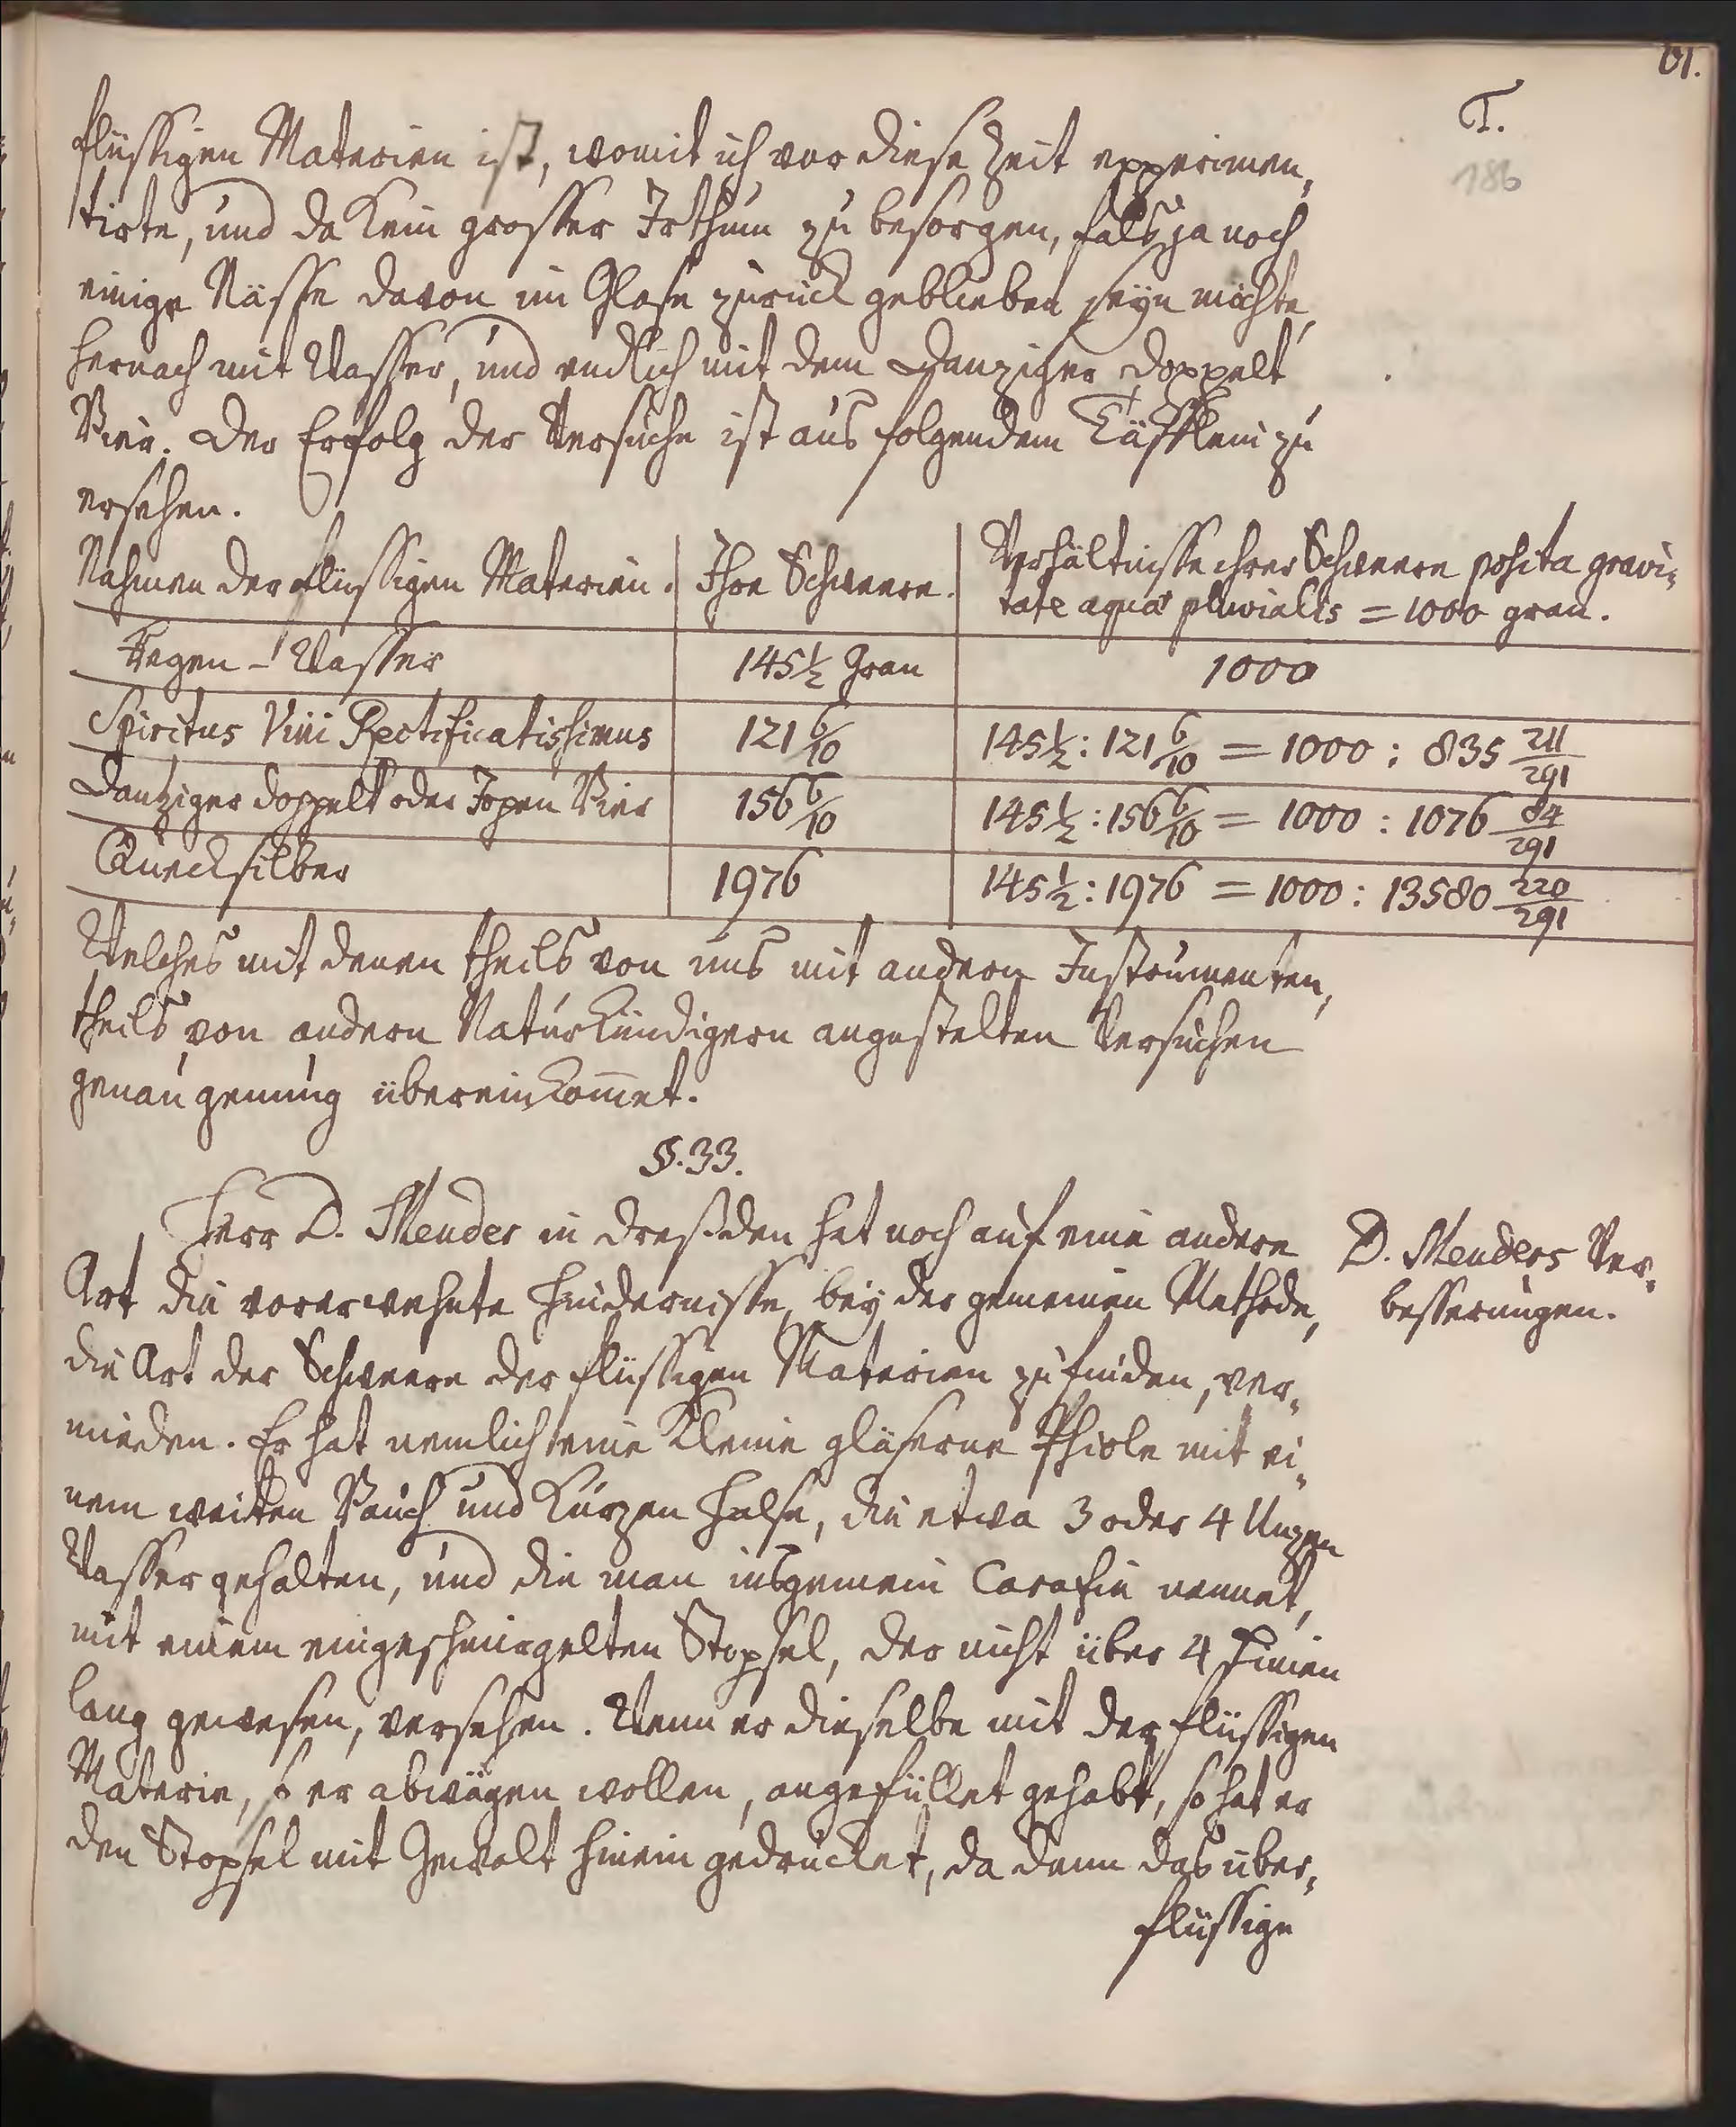 T.
186
flüssigen Materien ist, womit ich vor diese Zeit experimen„
tirte, und da kein grosser Irthum zu besorgen, fals ja noch
einige Nässe davon im Glase zurück geblieben seyn möchte,
hernach mit Wasser, und endlich mit dem Danziger Doppelt
Bier. Der Erfolg der Versuche ist aus folgendem Täfflein zu
ersehen.
Nahmen der flüssigen Materien. Ihre Schweere. Verhältnisse ihrer Schweere posita gravi„
tate aquæ pluvialis = 1000 gran.
Regen-Wasser 145½ Gran 1000
Spiritus Vini Rectificatissimus 121 6/10 145½ : 121 6/10 = 1000 : 835 211/291
Dantziger doppelt oder Jopen Bier 156 6/10 145½ : 156 6/10 = 1000 : 1076 84/291
Quecksilber 1976 145½ : 1976 = 1000 : 13580 220/291
Welches mit denen theils von uns mit andern Instrumenten,
theils von andern Naturkündigern angestelten Versuchen
genau genung übereinkom̄et.
§. 33.
Herr D. Meuder in Dreßden hat noch auf eine andere
D. Meuders Ver„
besserungen.
Art die vorerwehnte Hindernisse, bey der gemeinen Methode,
die Art der Schweere der flüssigen Materien zu finden, ver„
mieden. Er hat nemlich eine kleine gläserne Phiole mit ei„
nem weiten Bauch und kurzen Halse, die etwa 3 oder 4 Unzen
Wasser gehalten, und die man insgemein Carafin nennet,
mit einem eingeschmirgelten Stopsel, der nicht über 4 Linien
lang gewesen, versehen. Wenn er dieselbe mit der flüssigen
Materie, so er abwägen wollen, angefüllet gehabt, so hat er
den Stopsel mit Gewalt hinein gedrücket, da denn das über„
flüssige